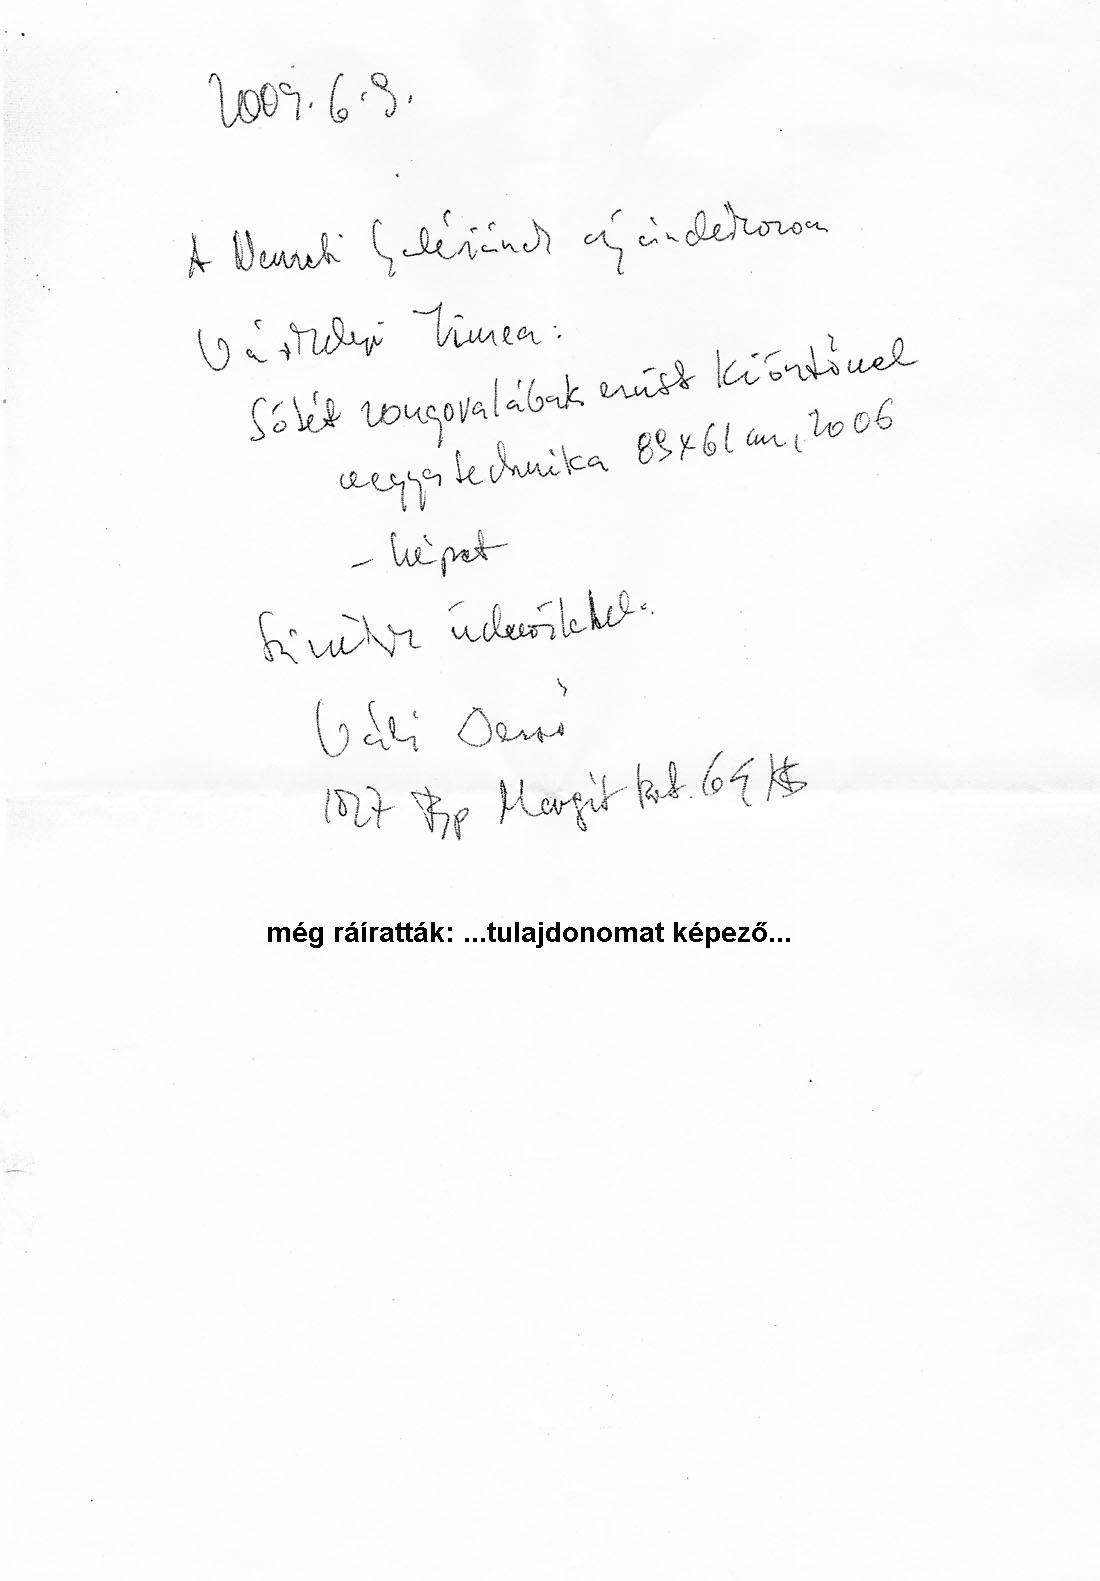 2009. 6. 9.
A Nemzeti Galériának ajándékozom
Várady Tímea:
Sötét zongoralábak ezüst kiöntővel
vegyes technika 89x61 cm, 2006
- képet
Szívélyes üdvözlettel.
Váli Dezső
1027 Bp Margit krt. 64/b
még ráíratták: ...tulajdonomat képező...